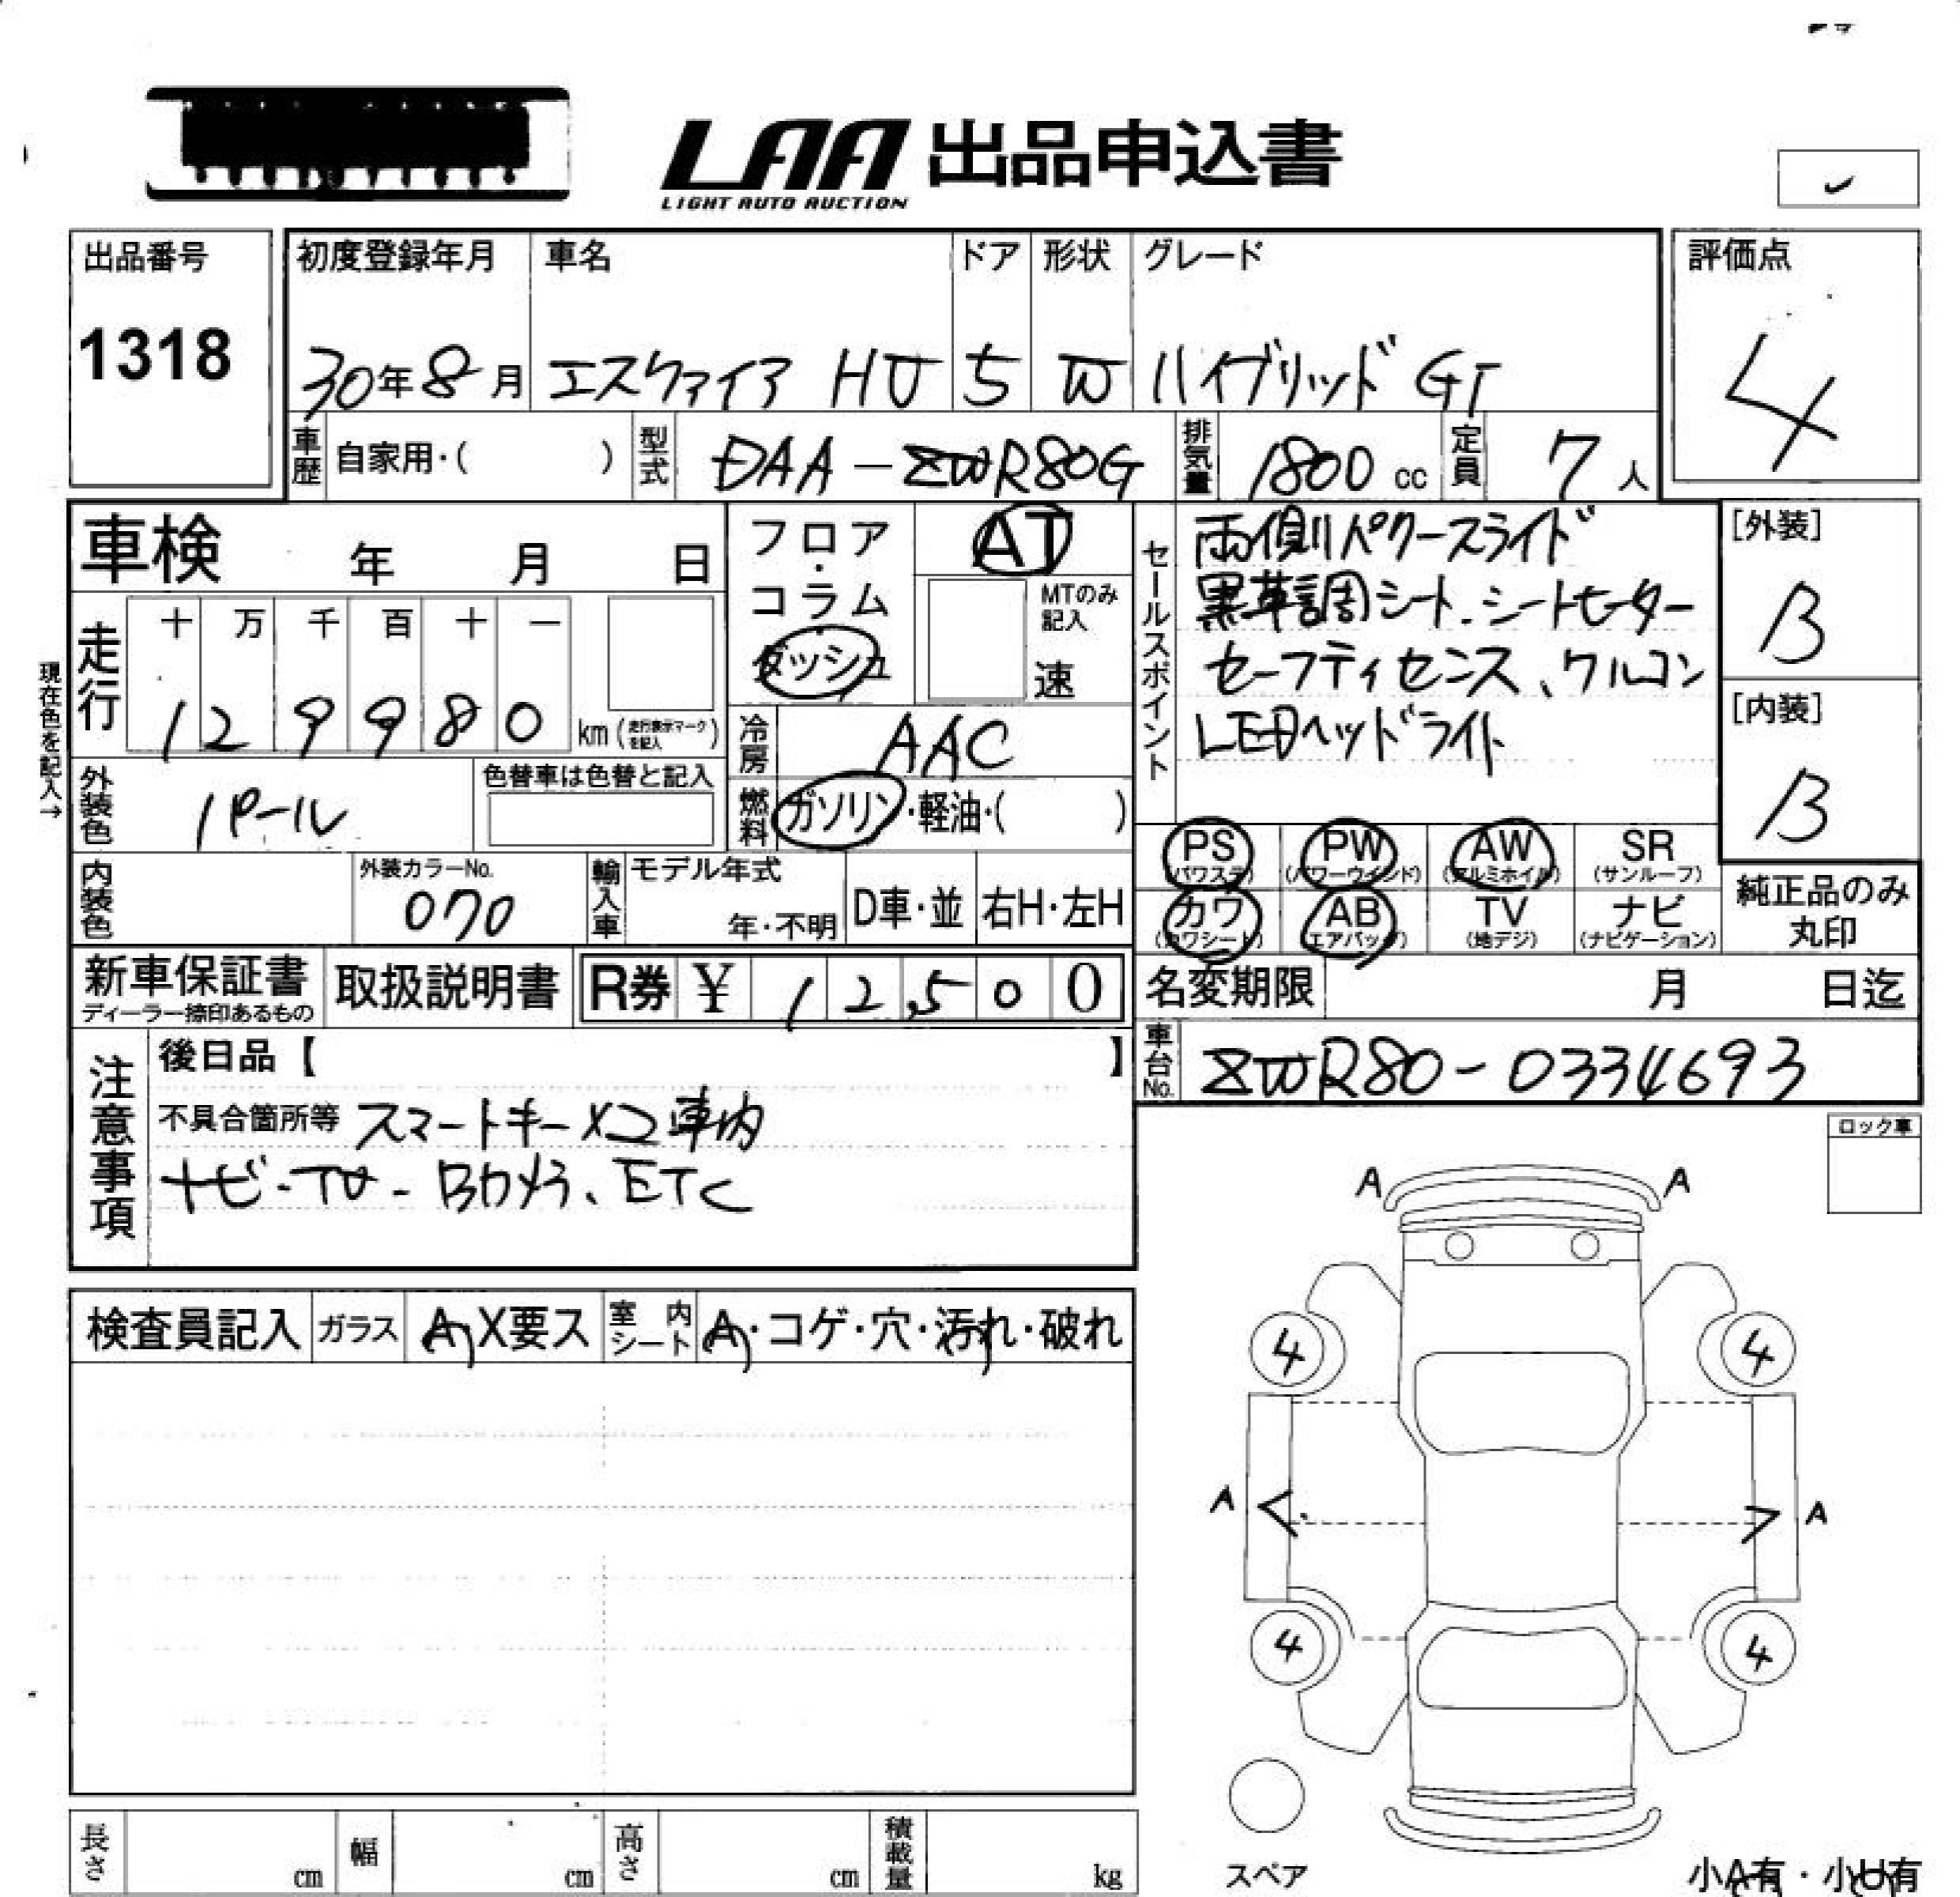 LAA 出品申込書
LIGHT AUTO AUCTION
出品番号
1318
初度登録年月 車名 ドア 形状 グレード
30年8月 エスクァイア HV 5 W ハイブリッド Gi
評価点
4
車歴 自家用・( ) 型式 DAA-ZWR80G 排気量 1800 cc 定員 7 人
車検 年 月 日
フロア・コラム・ダッシュ
AT
MTのみ記入
速
走行 十 万 千 百 十 一
129980 km (走行表示マークを記入)
現在色を記入→
セールスポイント
両側パワースライド
黒革調シート、シートヒーター
セーフティセンス、クルコン
LEDヘッドライト
[外装]
B
[内装]
B
冷房 AAC
外装色 パール 色替車は色替と記入
燃料 ガソリン・軽油・( )
PS (パワステ) PW (パワーウィンド) AW (アルミホイル) SR (サンルーフ)
カワ (カワシート) AB (エアバッグ) TV (地デジ) ナビ (ナビゲーション)
純正品のみ丸印
内装色 外装カラーNo. 070 輸入車 モデル年式 年・不明 D車・並 右H・左H
新車保証書 ディーラー捺印あるもの 取扱説明書 R券 ¥ 12,500
名変期限 月 日迄
車台No. ZWR80-0334693
注意事項
後日品【 】
不具合箇所等 スマートキーX2車内
ナビ-TV-Bカメラ、ETC
ロック車
検査員記入 ガラス A・X要ス 室内シート A・コゲ・穴・汚れ・破れ
A A
4 4
A A
4 4
スペア
小A有・小U有
長さ cm 幅 cm 高さ cm 積載量 kg